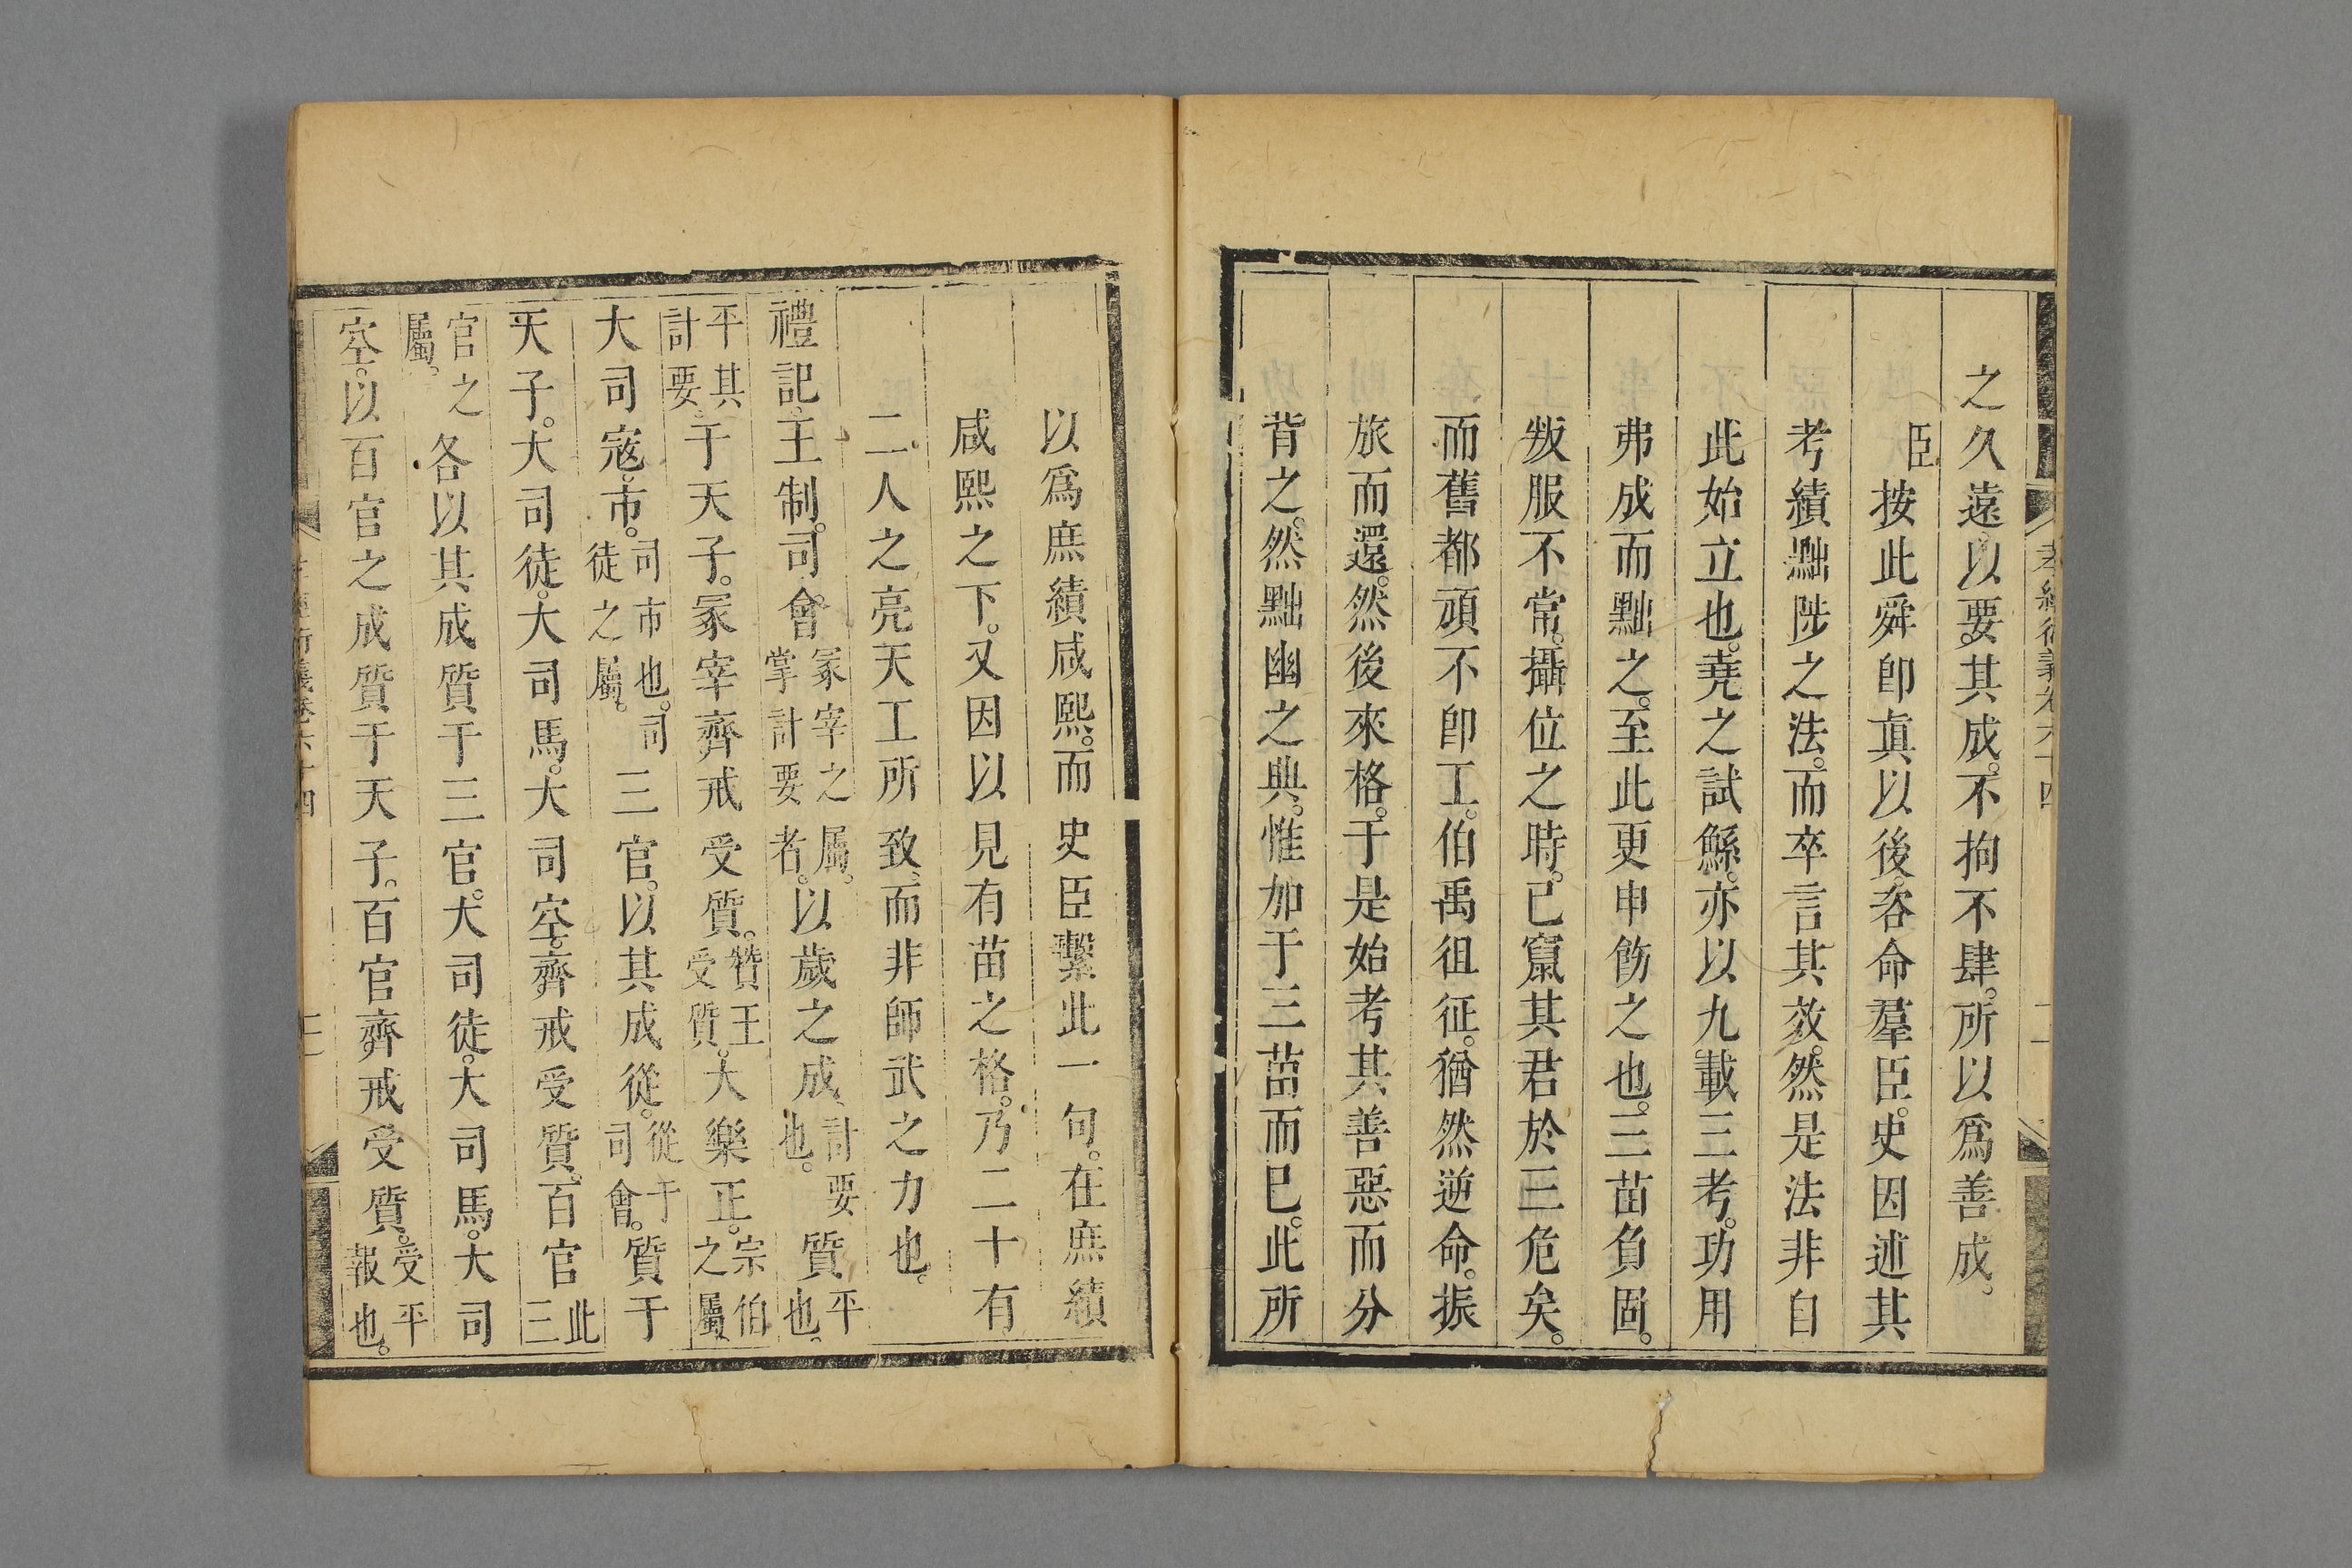 孝經衍義卷六十四
之久遠以要其成。不拘不肆。所以爲善成。
臣按此舜卽眞以後。咨命羣臣。史因述其
考績黜陟之法。而卒言其效。然是法非自
此始立也。堯之試鯀。亦以九載三考。功用
弗成而黜之。至此更申飭之也。三苗負固。
叛服不常。攝位之時。已竄其君於三危矣。
而舊都頑不卽工。伯禹徂征。猶然逆命。振
旅而還。然後來格。于是始考其善惡而分
背之。然黜幽之典。惟加于三苗而已。此所
以爲庶績咸熙。而史臣繫此一句。在庶績
咸熙之下。又因以見有苗之格。乃二十有
二人之亮天工所致。而非師武之力也。
禮記。王制。司會冢宰之屬。掌計要者。以歲之成計要也。質平也。
平其計要。于天子。冢宰齊戒受質。贊王受質。大樂正。宗伯之屬。
大司寇。市。司市也。司徒之屬。三官。以其成從。從于司會。質于
天子。大司徒。大司馬。大司空。齊戒受質。百官此三
官之屬。各以其成質于三官。大司徒。大司馬。大司
空。以百官之成質于天子。百官齊戒受質。受平報也。
孝經衍義卷六十四